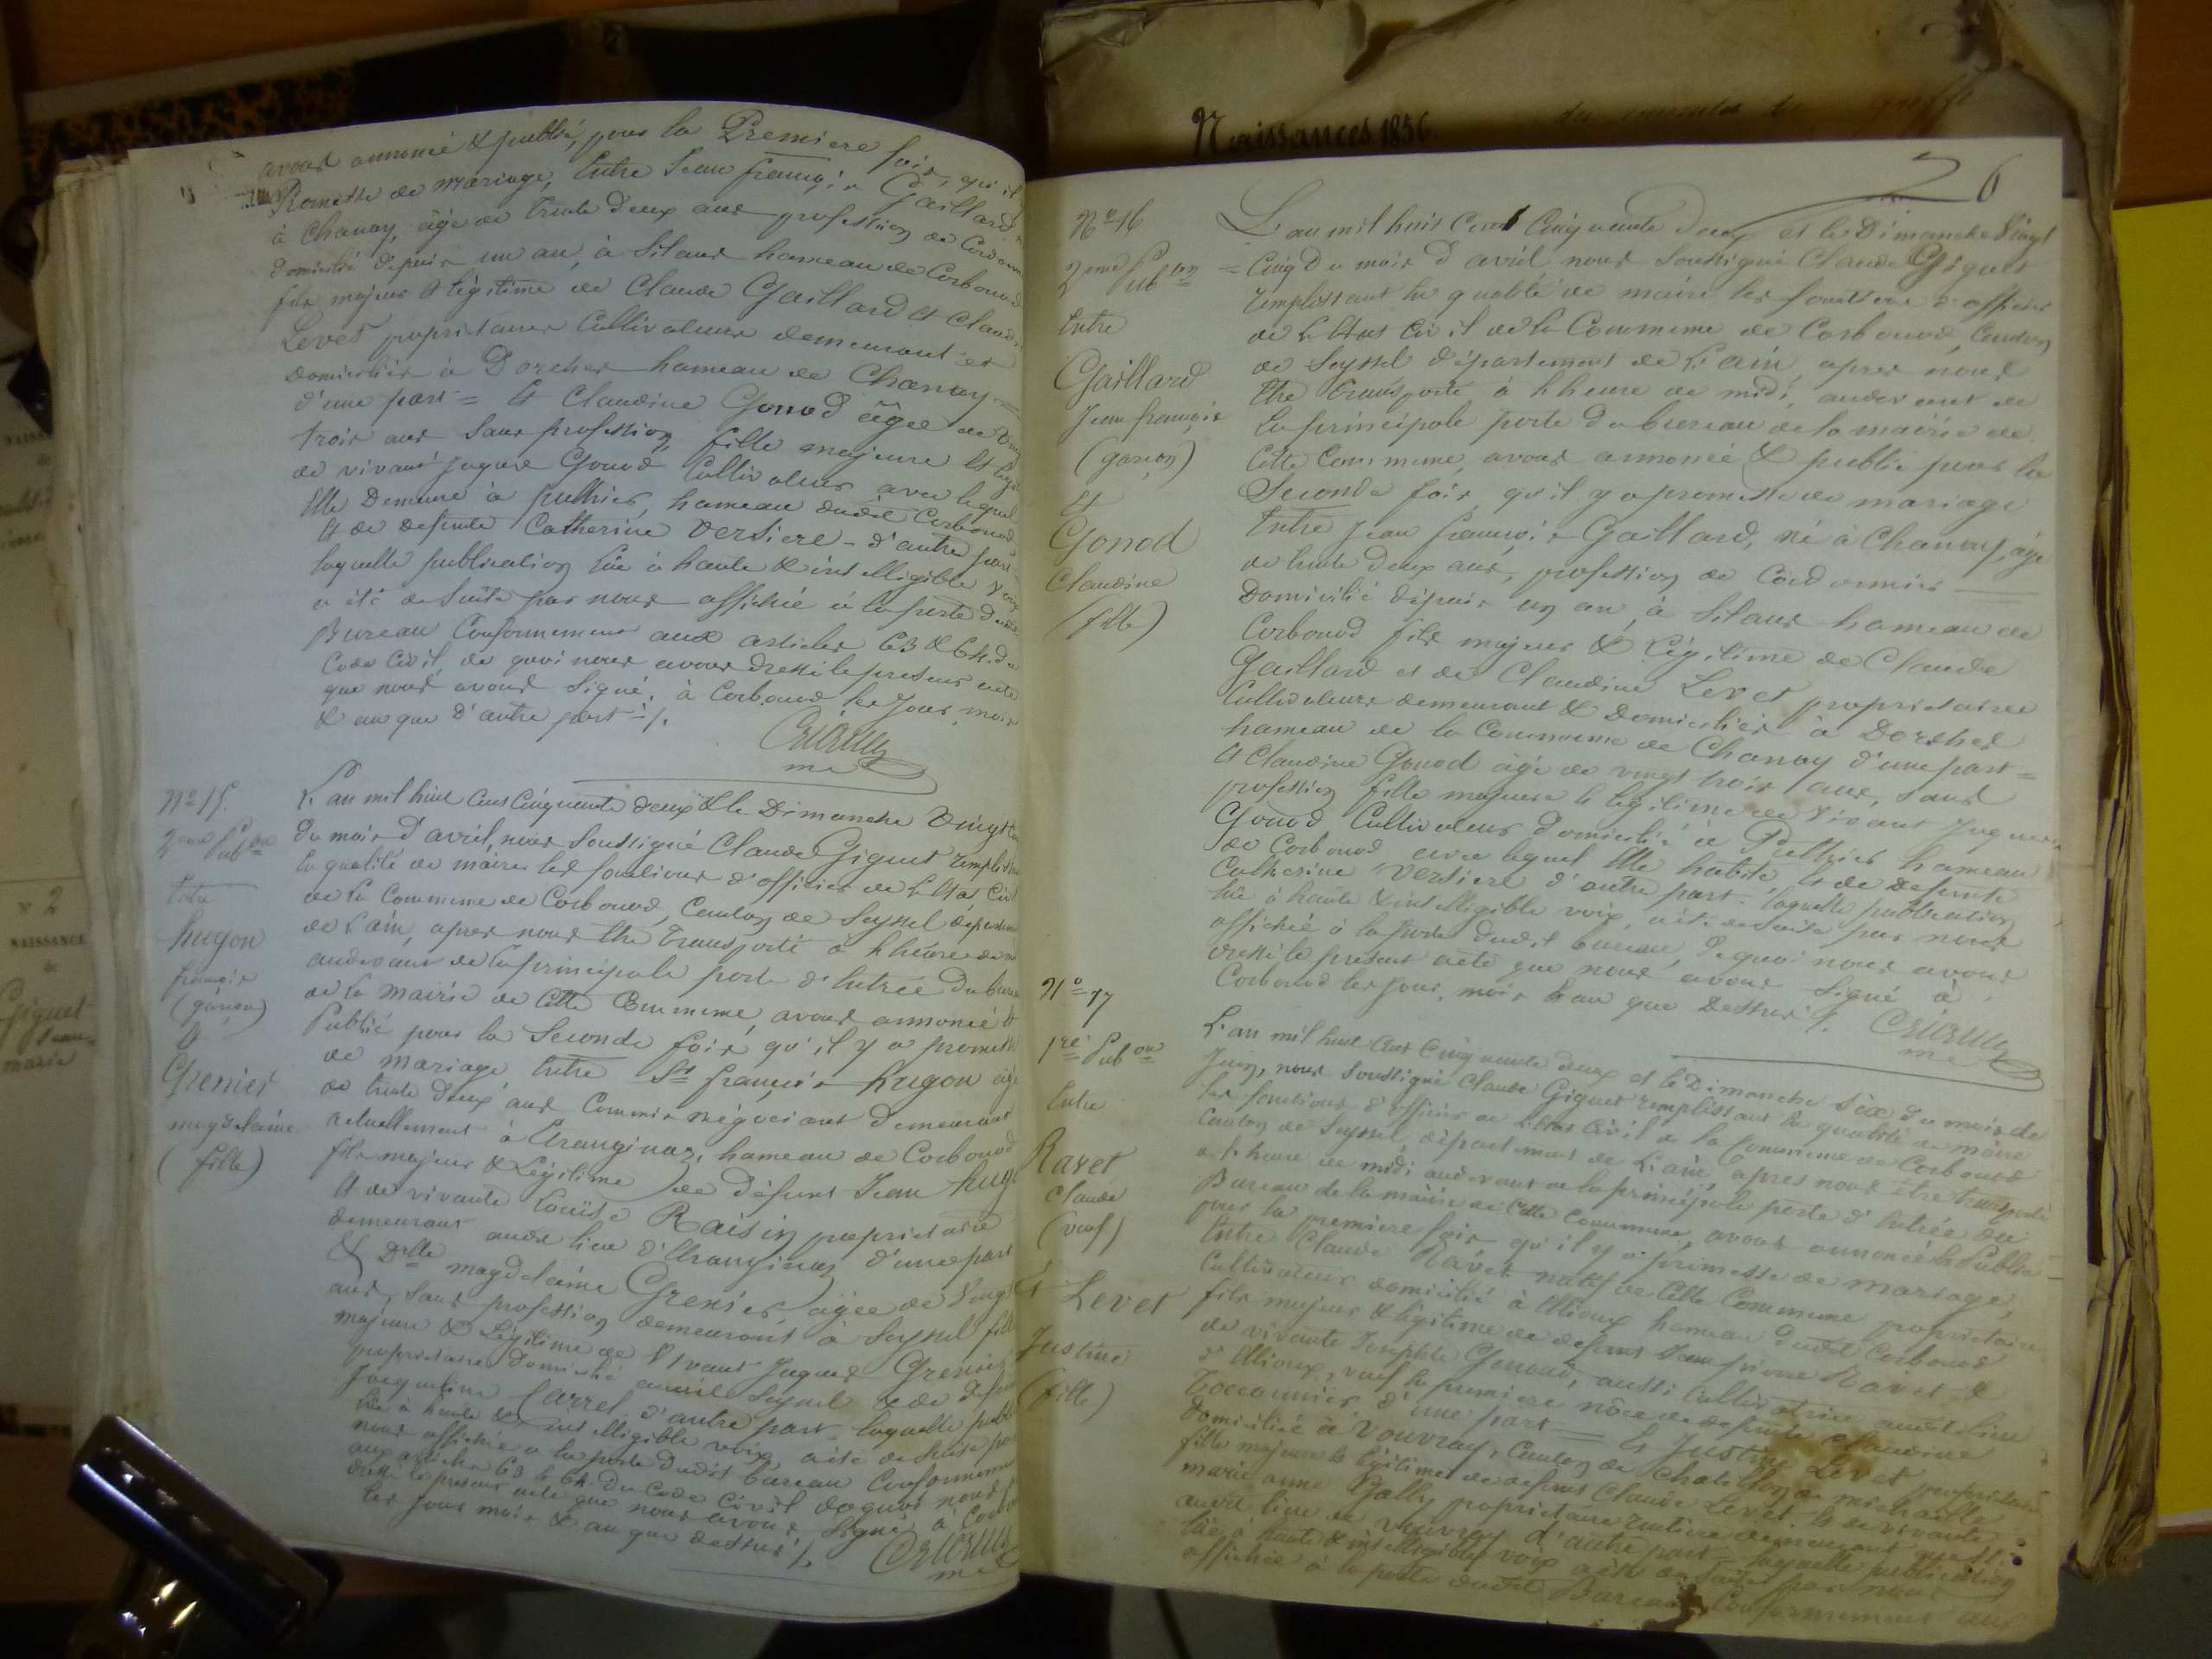 avons annoncé & publié, pour la Premiere fois, qu'il
Promesse de mariage, Entre Jean françois Gaillard
à Chanay, âgé de trente deux ans profession de Cordonn
domicilié depuis un an, à Silans hameau de Corbonod
fils majeur & légitime de Claude Gaillard et Claud
Levet propriétaires Cultivateurs demeurant et
Domiciliés à Dorches hameau de Chanay =
d'une part = Et Claudine Gonod âgée de
trois ans sans profession, fille majeure et légi
de vivant Jaques Gonod Cultivateur avec lequel
Elle Demeure à puthier, hameau dudit Corbonod
Et de defunte Catherine Versiere - d'autre part
laquelle publication lue à haute & intelligible voix
a été de suite par nous affichée à la porte dudit
Bureau Conformement aux articles 63 & 64 du
Code Civil, de quoi nous avons dressé le present acte
que nous avons signé, à Corbonod les Jour, mois
& an que d'autre part ./.
N° 15.
2eme Pubon
Entre
hugon
françois
(garçon)
Et
Grenier
magdelaine
(fille)
L'an mil huit cent cinquante deux & le Dimanche Vingt
du mois d'avril, nous soussigné Claude Giguet rempliss
la qualité de maire les fonctions d'officier de l'Etat Civil
de la Commune de Corbonod, Canton de Seyssel départem
de l'ain, apres nous être transporté à l'heure de
audevant de la principale porte d'Entrée du bureau
de la mairie de Cette Commune, avons annoncé &
Publié pour la Seconde fois qu'il y a promesse
de mariage Entre Sr françois hugon âgé
de trente deux ans Commis négociant demeurant
actuellement à Eranginaz, hameau de Corbonod
fils majeur & Légitime de défunt Jean hugon
Et de vivante Louise Raisin propriétaire
demeurant audit lieu d'Eranginaz d'une part
Et Dlle magdelaine Grenier, âgée de Vingt
ans, sans profession demeurant à Seyssel fille
majeure & Légitime de Vivant Jaques Grenier
propriétaire domicilié audit Seyssel & de defunte
Jacqueline Carrel, d'autre part - laquelle publi
lue à haute & intelligible voix, a été de suite par
nous affichée à la porte dudit bureau Conformement
aux articles 63 & 64 du Code Civil de quoi nous
dressé le present acte que nous avons signé, à Corbo
les jour mois & an que dessus ./.
Naissances 1856
26
N° 16
2eme Pubon
Entre
Gaillard
Jean françois
(garçon)
Et
Gonod
Claudine
(fille)
L'an mil huit Cent Cinquante deux et le Dimanche Vingt
= Cinq du mois d'avril, nous soussigné Claude Giguet
remplissant la qualité de maire les fonctions d'officier
de l'Etat Civil de la Commune de Corbonod, Canton
de Seyssel département de l'ain, apres nous
être transporté à l'heure de midi, audevant de
la principale porte du bureau de la mairie de
Cette Commune, avons annoncé & publié pour la
Seconde fois, qu'il y a promesse de mariage
Entre Jean françois Gaillard, né à Chanay, âgé
de trente deux ans, profession de Cordonnier
Domicilié depuis un an, à Silans hameau de
Corbonod fils majeur & Légitime de Claude
Gaillard et de Claudine Levet propriétaires
Cultivateurs demeurant & Domiciliés à Dorches
hameau de la Commune de Chanay d'une part =
Et Claudine Gonod âgée de vingt trois ans, sans
profession fille majeure & légitime de Vivant Jaques
Gonod Cultivateur domicilié à Puthier hameau
de Corbonod, avec lequel Elle habite, & de Defunte
Catherine Versiere d'autre part - laquelle publication
lue à haute & intelligible voix, a été de suite par nous
affichée à la porte dudit bureau, de quoi nous avons
dressé le present acte que nous avons signé à
Corbonod les jour, mois & an que Dessus ./.
N° 17
1re Pubon
Entre
Ravet
Claude
(veuf)
Et
Levet
Justine
(fille)
L'an mil huit cent cinquante deux et le Dimanche six du mois de
Juin, nous soussigné Claude Giguet remplissant la qualité de maire
les fonctions d'officier de l'Etat Civil de la Commune de Corbonod
Canton de Seyssel, département de L'ain, apres nous être transporté
à l'heure de midi audevant de la principale porte d'Entrée du
Bureau de la mairie de Cette Commune, avons annoncé & Publié
pour la premiere fois qu'il y a promesse de mariage,
Entre Claude Ravet natif de Cette Commune propriétaire
Cultivateur domicilié à Etlioux hameau dudit Corbonod
fils majeur & légitime de defunt Jean pierre Ravet &
de vivante Josephte Genoud, aussi Cultivatrice audit lieu
d'Etlioux, veuf en premiere nôce de defunte Claudine
d'une part = Et Justine Levet propriétaire
Domiciliée à Vouvray, Canton de Chatillon de michaille
fille majeure & légitime de defunt Claude Levet & de vivante
marie anne Gally propriétaire rentiere demeurant aussi
audit lieu de Vouvray d'autre part - laquelle publication
lue à haute & intelligible voix a été de suite par nous
affichée à la porte dudit Bureau Conformement aux
N° 2
NAISSANCE
de
Giguet
Jean
marie